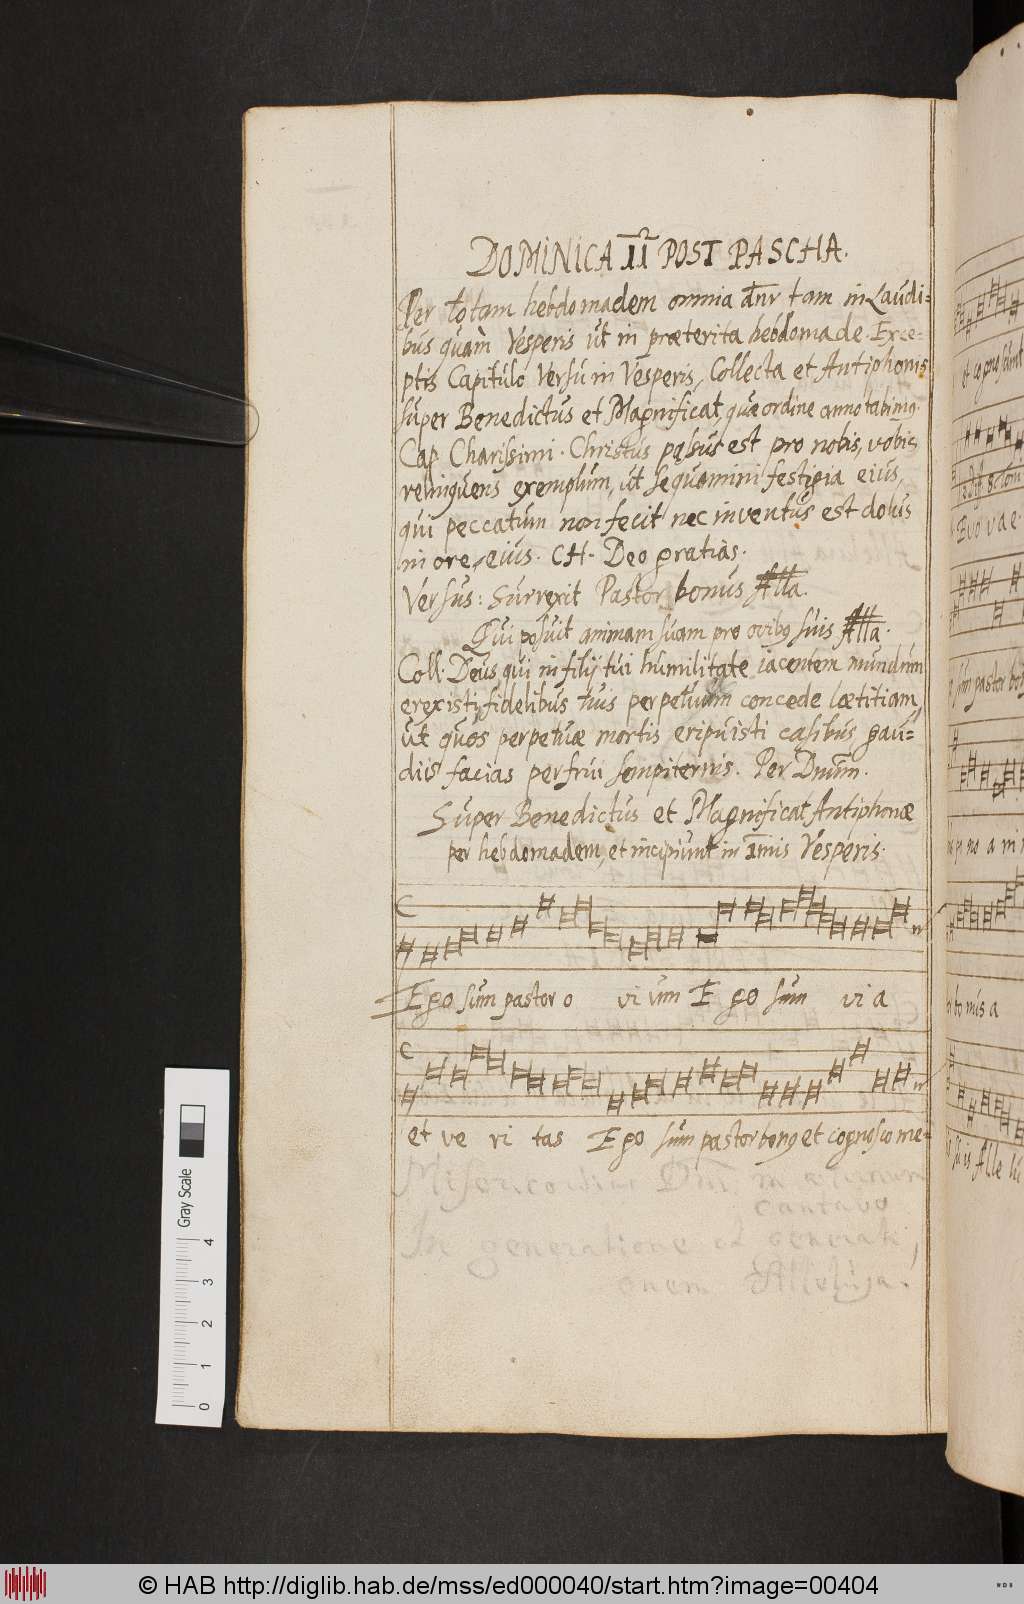 DOMINICA II POST PASCHA.
Per totam hebdomadem omnia dnr tam in Laudi=
bus quam Vesperis ut in præterita hebdomade. Exce=
ptis Capitulo Versu in Vesperis, Collecta et Antiphonis
super Benedictus et Magnificat, quæ ordine annotabimq.
Cap. Charissimi. Christus passus est pro nobis, vobis
relinquens exemplum, ut sequamini festigia eius,
qui peccatum non fecit nec inventus est dolus
in ore eius. CH. Deo gratias.
Versus: Surrexit Pastor bonus Alla.
Qui posuit animam suam pro ovibq suis Alla.
Coll. Deus qui in filij tui humilitate iacentem mundum
erexisti, fidelibus tuis perpetuam concede lætitiam,
ut quos perpetuæ mortis eripuisti casibus gau=
diis facias perfrui sempiternis. Per Dnum.
Super Benedictus et Magnificat Antiphonæ
per hebdomadem, et incipiunt in Imis Vesperis.
Ego sum pastor o vi um Ego sum vi a
et ve ri tas Ego sum pastor bonq et cognosco me=
Misericordias Dni in æternum
cantabo
In generatione et generati,
onem Alleluja.
et cognoscunt
Evovae.
sum pastor bo
bo nis a
suis Alle lu
Gray Scale
0 1 2 3 4
© HAB http://diglib.hab.de/mss/ed000040/start.htm?image=00404